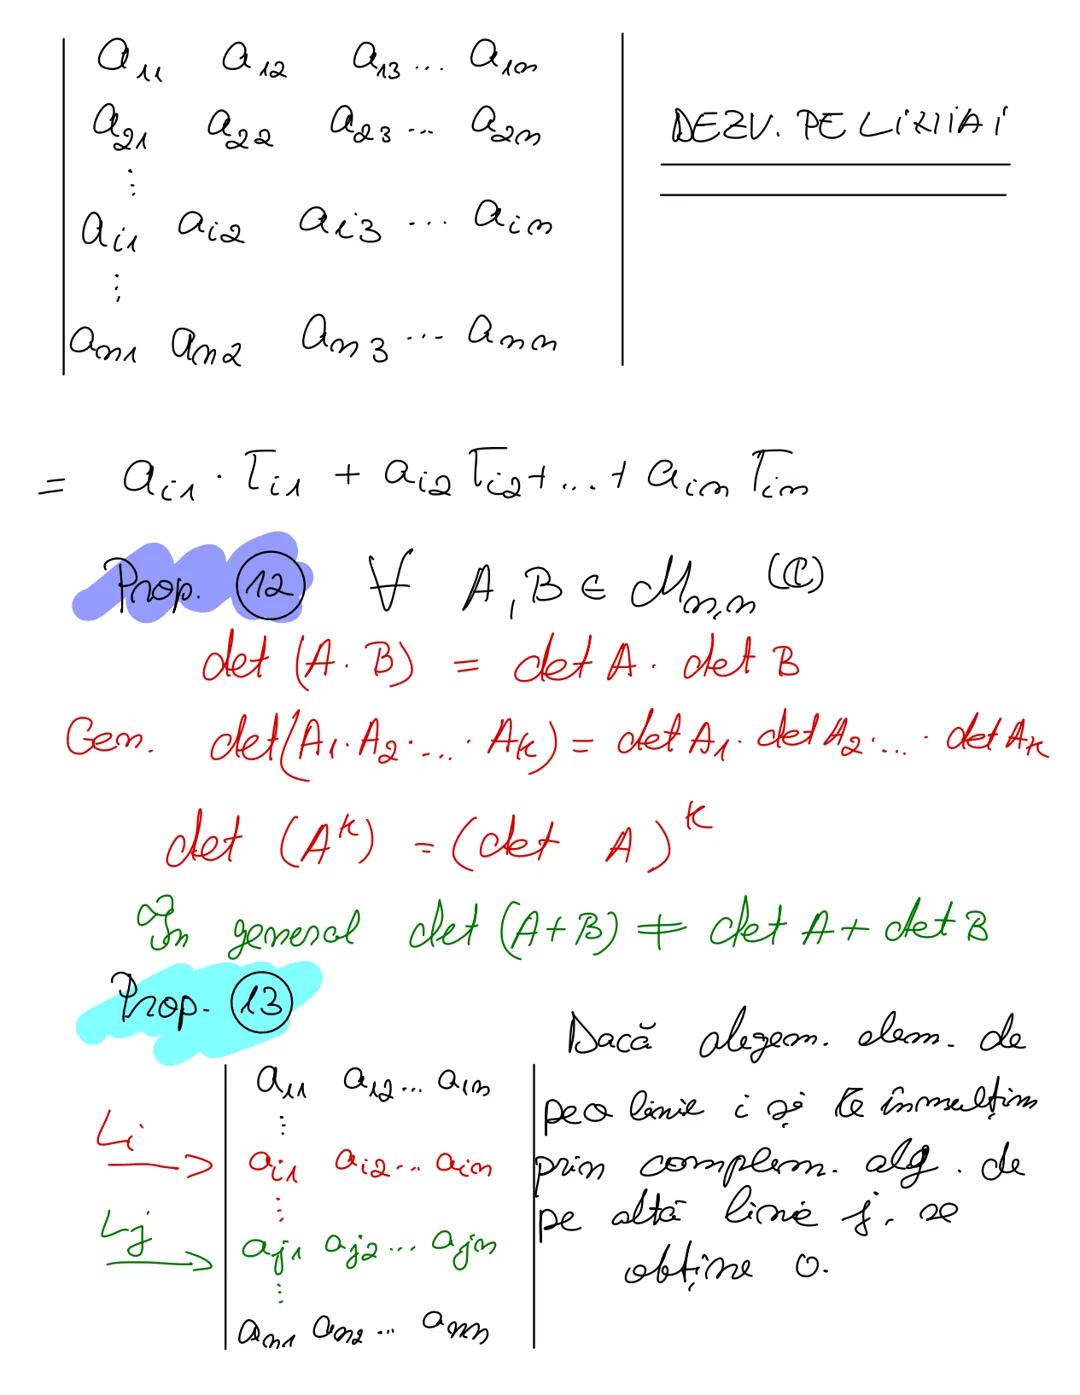 a₁₁ a₁₂ a₁₃ ... a₁ₙ
a₂₁ a₂₂ a₂₃ ... a₂ₙ
DEZV. PE LINIA i
⋮
aᵢ₁ aᵢ₂ aᵢ₃ ... aᵢₙ
⋮
aₙ₁ aₙ₂ aₙ₃ ... aₙₙ
= aᵢ₁ · Γᵢ₁ + aᵢ₂ Γᵢ₂ + ... + aᵢₙ Γᵢₙ
Prop. 12 ∀ A, B ∈ Mₙ,ₙ (ℂ)
det (A · B) = det A · det B
Gen. det(A₁·A₂·...·Aₖ) = det A₁ · det A₂ · ... · det Aₖ
det (Aᵏ) = (det A)ᵏ
În general det (A+B) ≠ det A + det B
Prop. 13
a₁₁ a₁₂ ... a₁ₙ
⋮
Lᵢ → aᵢ₁ aᵢ₂ ... aᵢₙ
⋮
Lⱼ → aⱼ₁ aⱼ₂ ... aⱼₙ
⋮
aₙ₁ aₙ₂ ... aₙₙ
Dacă alegem. elem. de
pe o linie i și le înmulțim
prin complem. alg. de
pe altă linie j, se
obține 0.